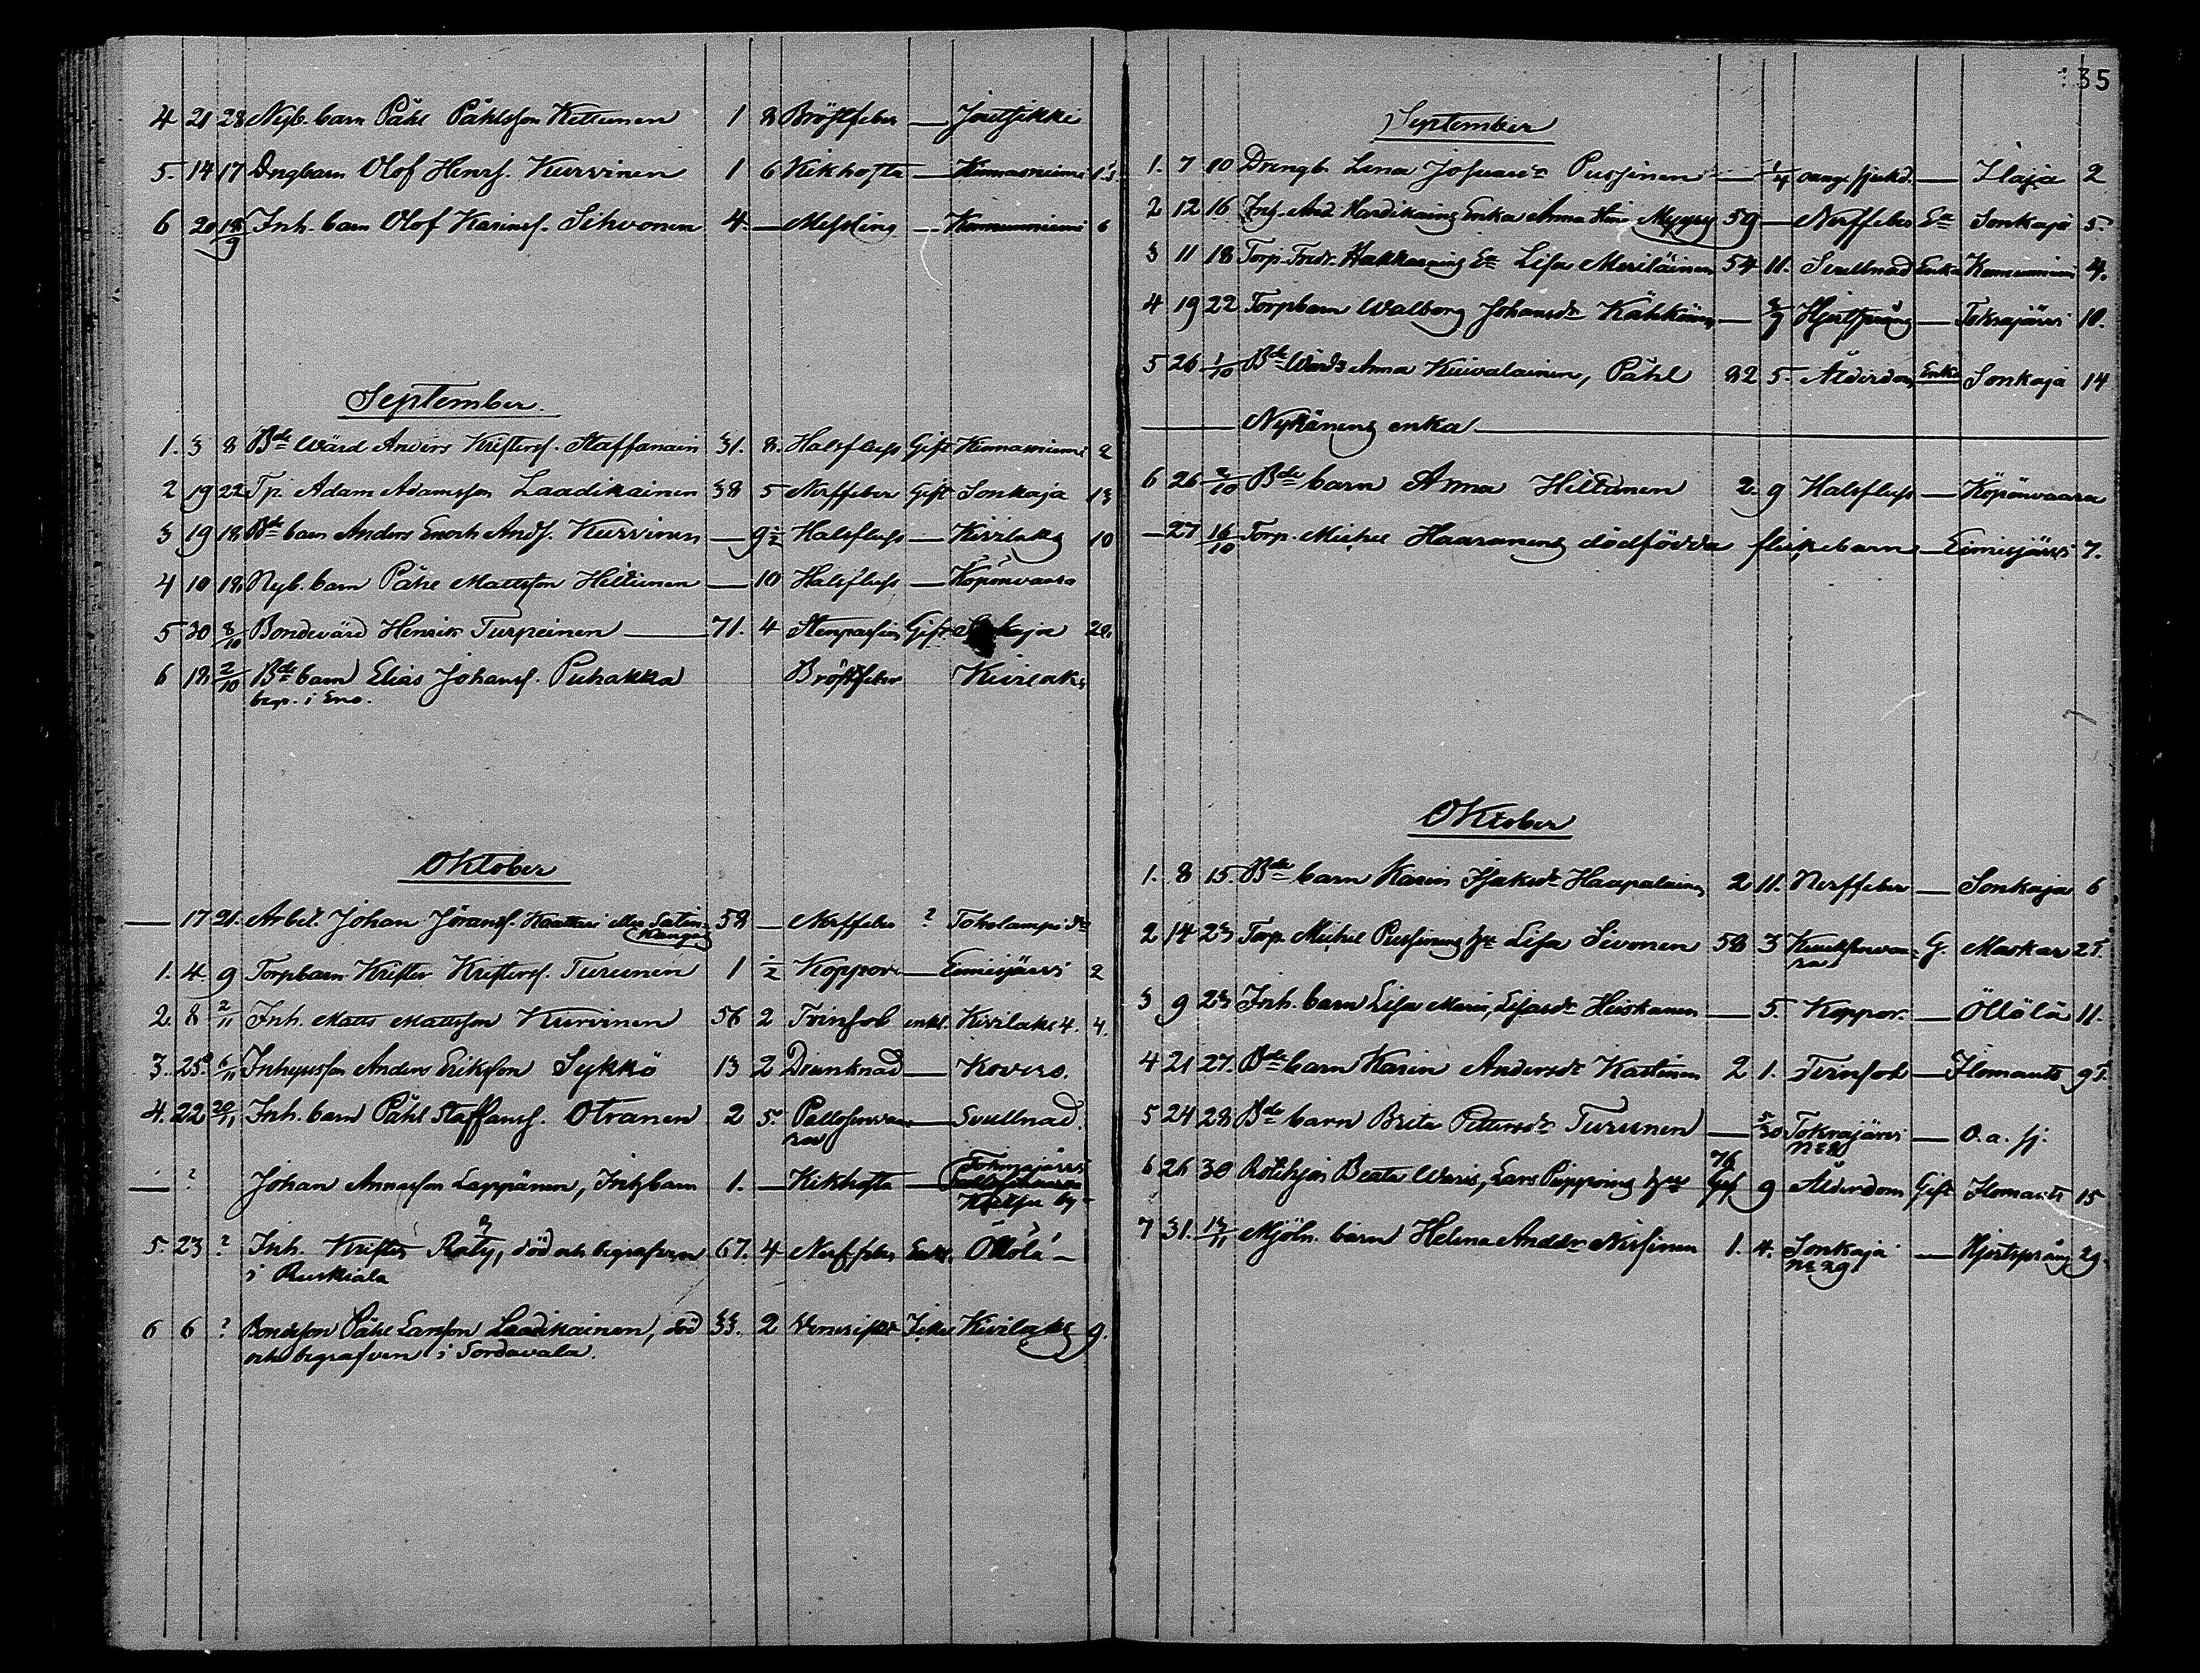 4 21 28 Nyb. barn Påhl Påhlsson Kettunen 1 8 Bröstfeber — Joutsikki
5. 14 17 Dngbarn Olof Henrs. Kurvinen 1 6 Kikhosta — Kinnasniemi
6 20 18/9 Inh. barn Olof Karins. Sihvonen 4 — Messling — 6
September.
1. 3 8 Bde Wärd Anders Kristers. Staffanain 31. 8. Halsfluss Gift Kinnasniemi 2
2 19 22 Tp. Adam Adamsson Laadikainen 38 5 Nerffeber Gift Sonkaja 13
3 19 18 Bde barn Anders Enoch Ands. Kurvinen — 9 1/2 Halsfluss — Kivilaks 10
4 10 18 Nyb. barn Påhl Mattsson Hiltunen — 10 Halsfluss — Köpönvaara
5 30 8/10 Bondevärd Henrik Turpeinen — 71. 4 Stenpassion Gift 20.
6 18 2/10 Bde barn Elias Johans. Puhakka Bröstfeber Kivilaks
begr. i Eno.
Oktober
— 17 21. Arbet. Johan Jörans. 58 — Nerffeber ? Tokolampi
1. 4. 9 Torpbarn Krister Kristers. Turunen 1 1/2 Koppor — Eimisjärvi 2
2. 8 2/11 Inh. Matts Mattsson Kurvinen 56 2 Tvinsot enkl. Kivilaks 4. 4.
3. 25. 6/11 Inhysesson Anders Eriksson Sykkö 13 2 Drunknad — Kovero.
4. 22 20/11 Inh. barn Påhl Staffans. Otranen 2 5. — Svullnad.
— ? Johan Annasson Lappänen, Inhbarn 1. — Kikhosta —
5. 23 ? Inh. Krister Räty, död och begrafven 67. 4 Nerffeber Enkl. Öllölä —
i Ruskiala
6 6 ? Bondeson Påhl Larsson Laadikainen, död 33. 2 Venerisk Kivilaks 9.
och begrafven i Sordavala.
35
September
1. 7 10 Drengb. Lena Josuaedr Pussinen — 1/4 oang. sjukd. — Ilaja 2
2 12 16 Inh. And. Hardikaing Enka Anna Mygry 59 — Nerffeber Ea Sonkaja 5.
3 11 18 Torp. Fredr. Hakkaraing Ea Lisa Meriläinen 54 11. Svullnad Enka 4.
4 19 22 Torpbarn Walborg Johansdr Kähköin — Hjertsprång — Tokrajärvi 10.
5 26 1/10 Bde Wärds Anna Kuivalainen, Påhl 82 5. Ålderdom Enka Sonkaja 14
Nykäneng enka
6 26 2/10 Bde barn Anna Hiltunen 2. 9 Halsfluss — Köpönvaara
— 27 16/10 Torp. Michel Haaraneng dödfödda flickebarn — Eimisjärvi 7.
Oktober
1. 8 15. Bde barn Karin Isaksdr Haapalainen 2 11. Nerffeber — Sonkaja 6
2 14 23 Torp. Michel Pussineng hu Lisa Sivonen 58 3 G. Maskar 25.
3 9 23 Inh. barn Lisa Maria, Lisasdr Heiskanen — 5. Koppor — Öllölä 11.
4 21 27. Bde barn Karin Andersdr Kastinen 2 1. Tvinsot — Ilomants 9
5 24 28 Bde barn Brita Petersdr Turunen — 5/30 Tokrajärvi — O. a. sj.
6 26 30 Rotehjon Beata Waris, Lars Pippoing hu 76 9 Ålderdom Gift Ilomants 15
7 31. 13/11 Mjöln. barn Helena Andsdr Nissinen 1. 4. Sonkaja — Hjertsprång 29.
No 29